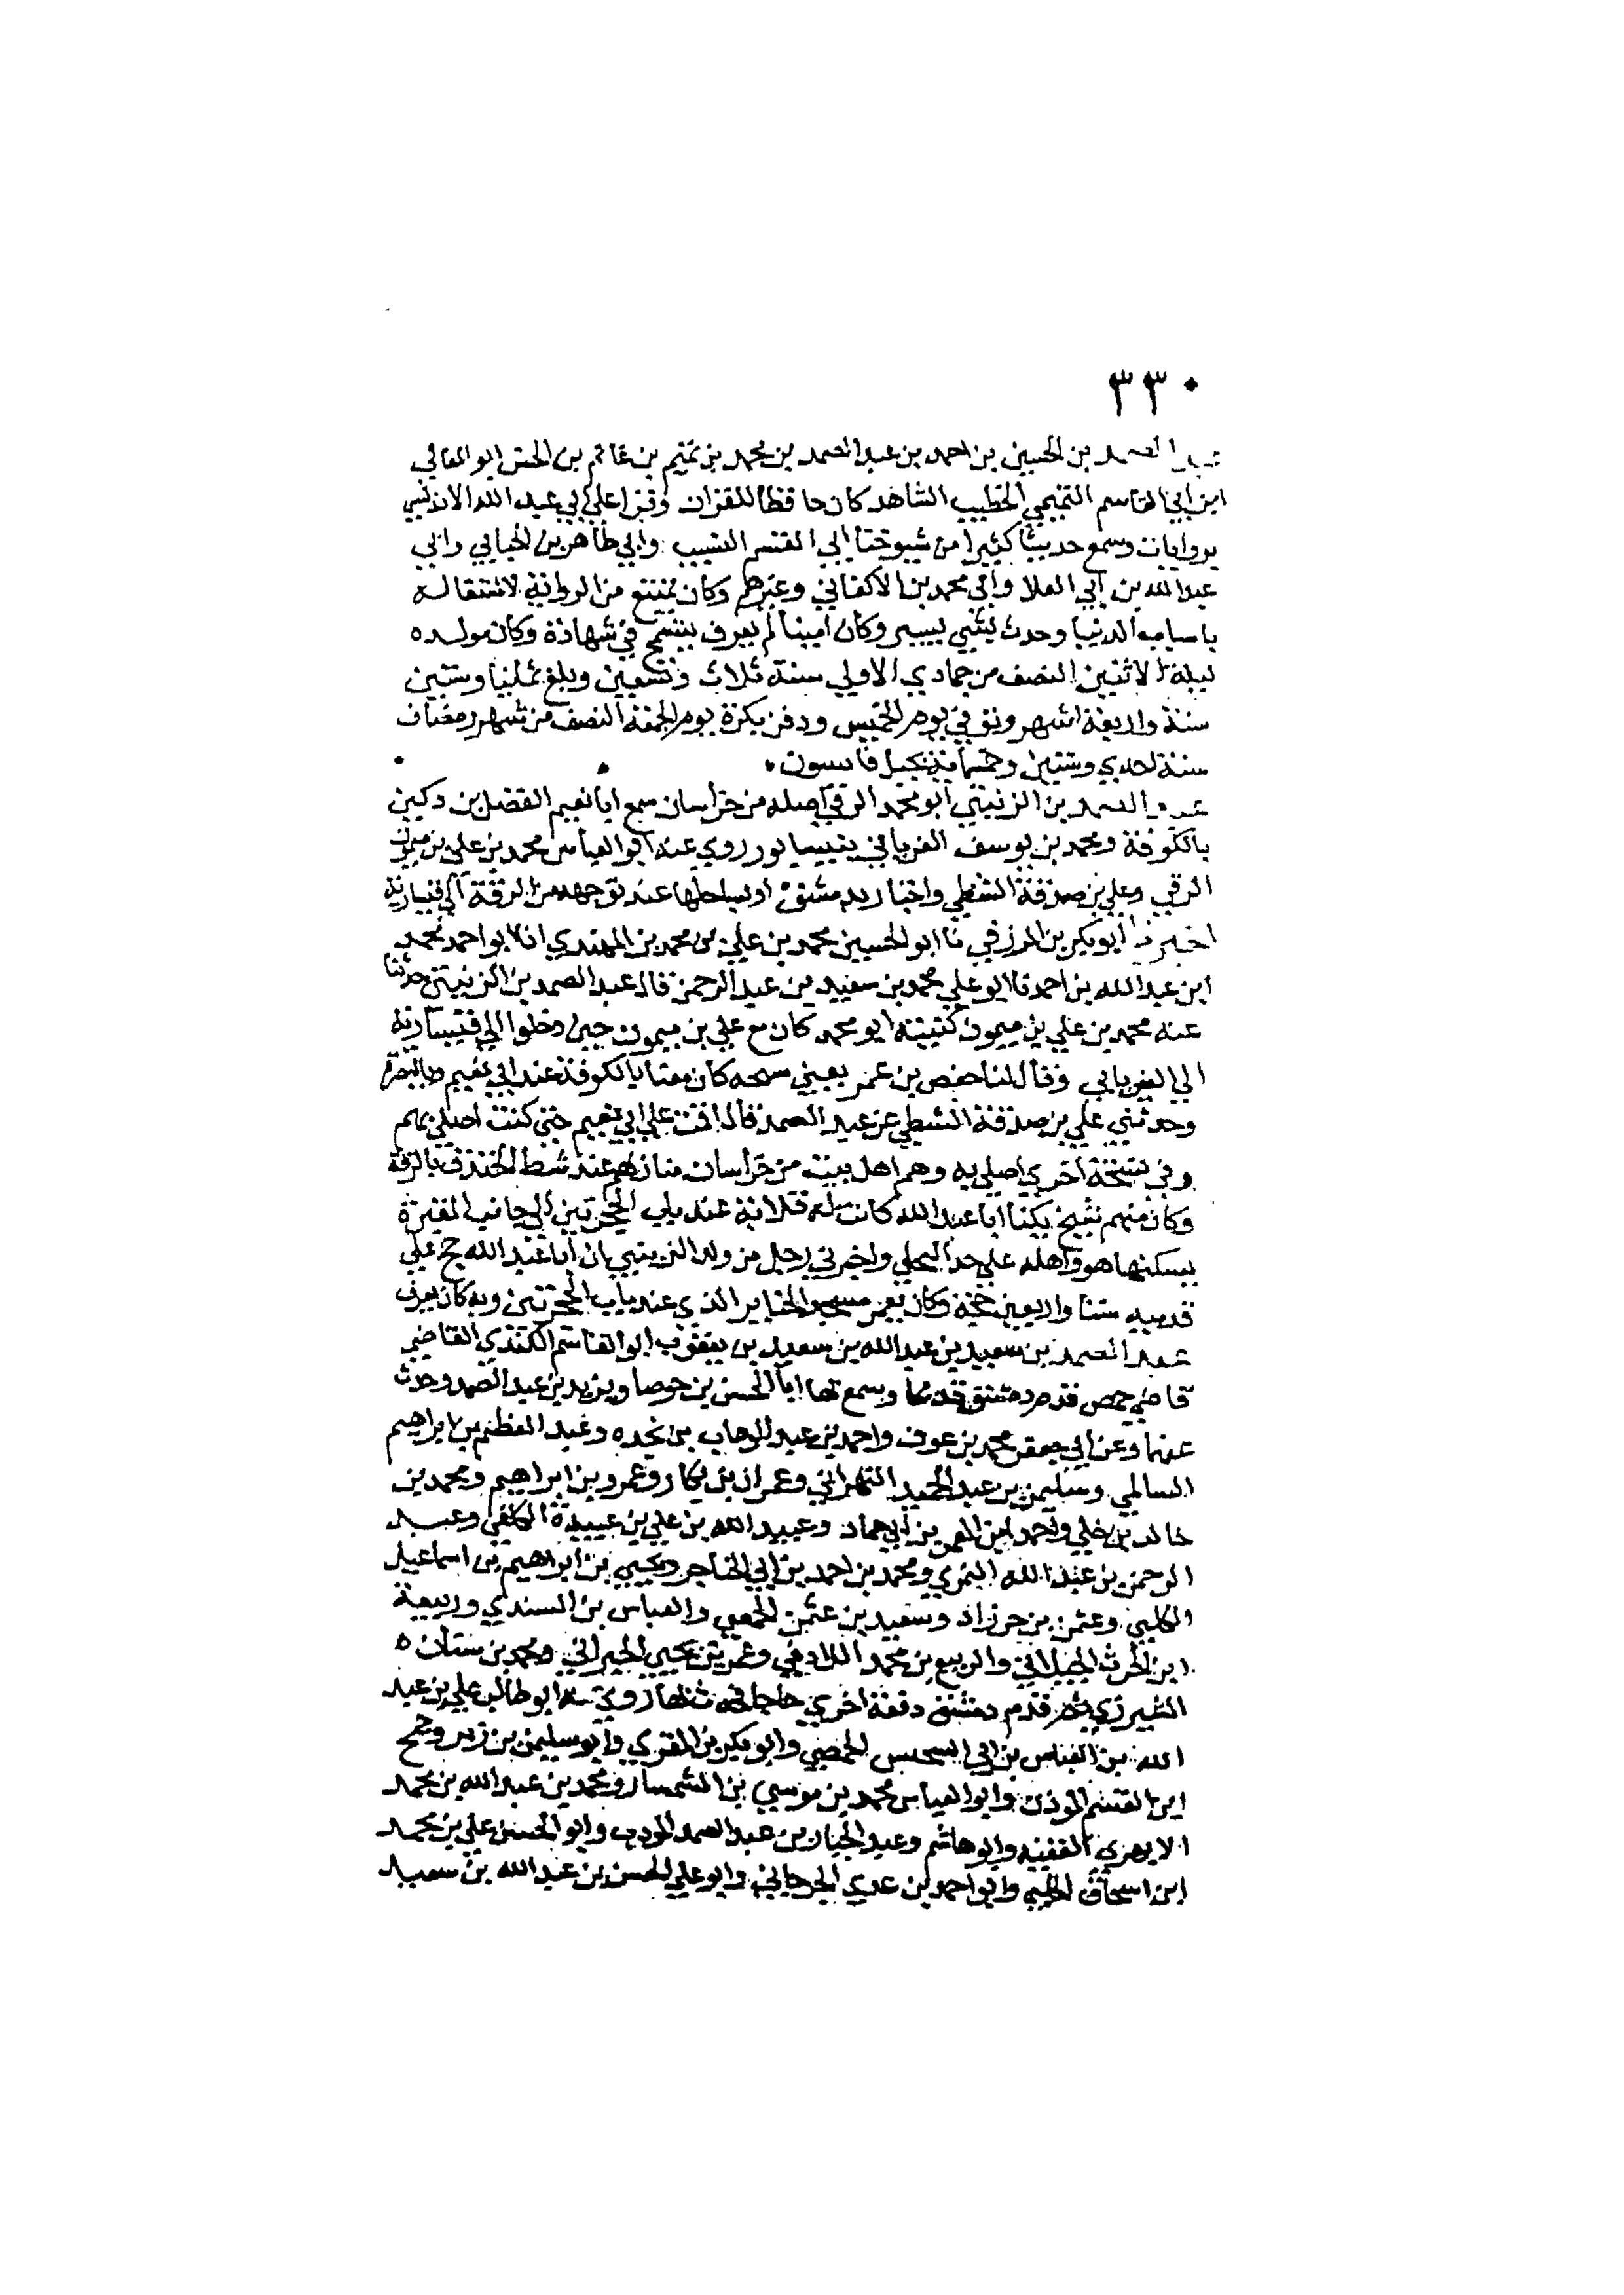 ٣٣٠
عبد الصمد بن الحسين بن احمد بن عبد الصمد بن محمد بن تميم بن غانم بن الحسن ابو المعالي
ابن ابي القاسم التميمي الخطيب الشاهد كان حافظا للقران وقرا علي ابي عبد الله الاندلسي
بروايات وسمع حديثا كثيرا من شيوخنا ابي القسم النسيب وابي طاهر بن الحنايي وابي
عبد الله بن ابي العلا وابي محمد بن الاكفاني وغيرهم وكان يمتنع من الرواية لاشتغاله
باسباب الدنيا وحدث بشي يسير وكان امينا لم يعرف بتسمح في شهادة وكان مولده
ليلة الاثنين النصف من جمادي الاولي سنة ثلاث وتسعين وبلغ ثمانيا وستين
سنة واربعة اشهر وتوفي يوم الخميس ودفن بكرة يوم الجمعة النصف من شهر رمضان
سنة احدي وستين وخمسماية بجبل قاسيون
عبد الصمد بن الزينبي ابو محمد الرقي اصله من خراسان سمع ابا نعيم الفضل بن دكين
بالكوفة ومحمد بن يوسف الفريابي بقيساريه روي عنه ابو العباس محمد بن علي بن ميمون
الرقي وعلي بن صدقة الشطي واجتاز بدمشق او بساحلها عند توجهه من الرقة الي قيسارية
اخبرنا ابو بكر بن المزرفي نا ابو الحسين محمد بن علي بن محمد بن المهتدي انا ابو احمد محمد
ابن عبد الله بن احمد نا ابو علي محمد بن سعيد بن عبد الرحمن قال عبد الصمد بن الزينبي حدثنا
عنه محمد بن علي بن ميمون كنيته ابو محمد كان مع علي بن ميمون حين دخلوا الي قيسارية
الي الفريابي وقال لنا حفص بن عمر يعني كان معنا بالكوفة عند ابي نعيم وبالبصرة
وحدثني علي بن صدقة الشطي عن عبد الصمد قال اقمت علي ابي نعيم حتي كنت اصلي بهم
وفي نسخة اخري اصلي به وهم اهل بيت من خراسان منازلهم عند شط الخندق بالرقة
وكان منهم شيخ يكنا ابا عبد الله كانت له قلاية عند باب الحجرتين الي جانب المقبرة
يسكنها هو واهله علي حد التخلي واخبرني رجل من ولد الزينبي ان ابا عبد الله حج علي
قدميه ستا واربعين حجة وكان يعمر مسجد الجنايز الذي عند باب الحجرتين وبه كان يعرف
عبد الصمد بن سعيد بن عبد الله بن سعيد بن يعقوب ابو القاسم الكندي القاضي
قاضي حمص قدم دمشق قديما وسمع بها ابا الحسن بن جوصا ويزيد بن عبد الصمد وحدث
عنهما وعن ابي جعفر محمد بن عوف واحمد بن عبد الوهاب بن نجده وعبد العظيم بن ابراهيم
السالمي وسليمن بن عبد الحميد البهراني وعمران بن بكار وعمرو بن ابراهيم ومحمد بن
خالد بن خلي واحمد بن المعمر بن ابي حماد وعبيد الله بن علي بن عبيدة الكلفي وعبد
الرحمن بن عبد الله النمري ومحمد بن احمد بن ابي الخناجر ويحيي بن ابراهيم بن اسماعيل
الكلبي وعثمن بن خرزاد وسعيد بن عثمن الحمصي والعباس بن السندي وربيعة
ابن الحرث الجبلاني والربيع بن محمد اللاذقي وعمر بن يحيي الحيراني ومحمد بن سنان
الشيرزي ثم قدم دمشق دفعة اخري حاجا فحدث بها روي عنه ابو طالب علي بن عبد
الله بن العباس بن ابي السحيس الحمصي وابو بكر بن المقري وابو سليمن بن زبر وجمح
ابن القسم الموذن وابو العباس محمد بن موسي بن السمسار ومحمد بن عبد الله بن محمد
الابهري الفقيه وابو هاشم وعبد الجبار بن عبد الصمد المودب وابو الحسن علي بن محمد
ابن اسحاق الحلبي وابو احمد بن عدي الجرجاني وابو علي الحسن بن عبد الله بن سعيد